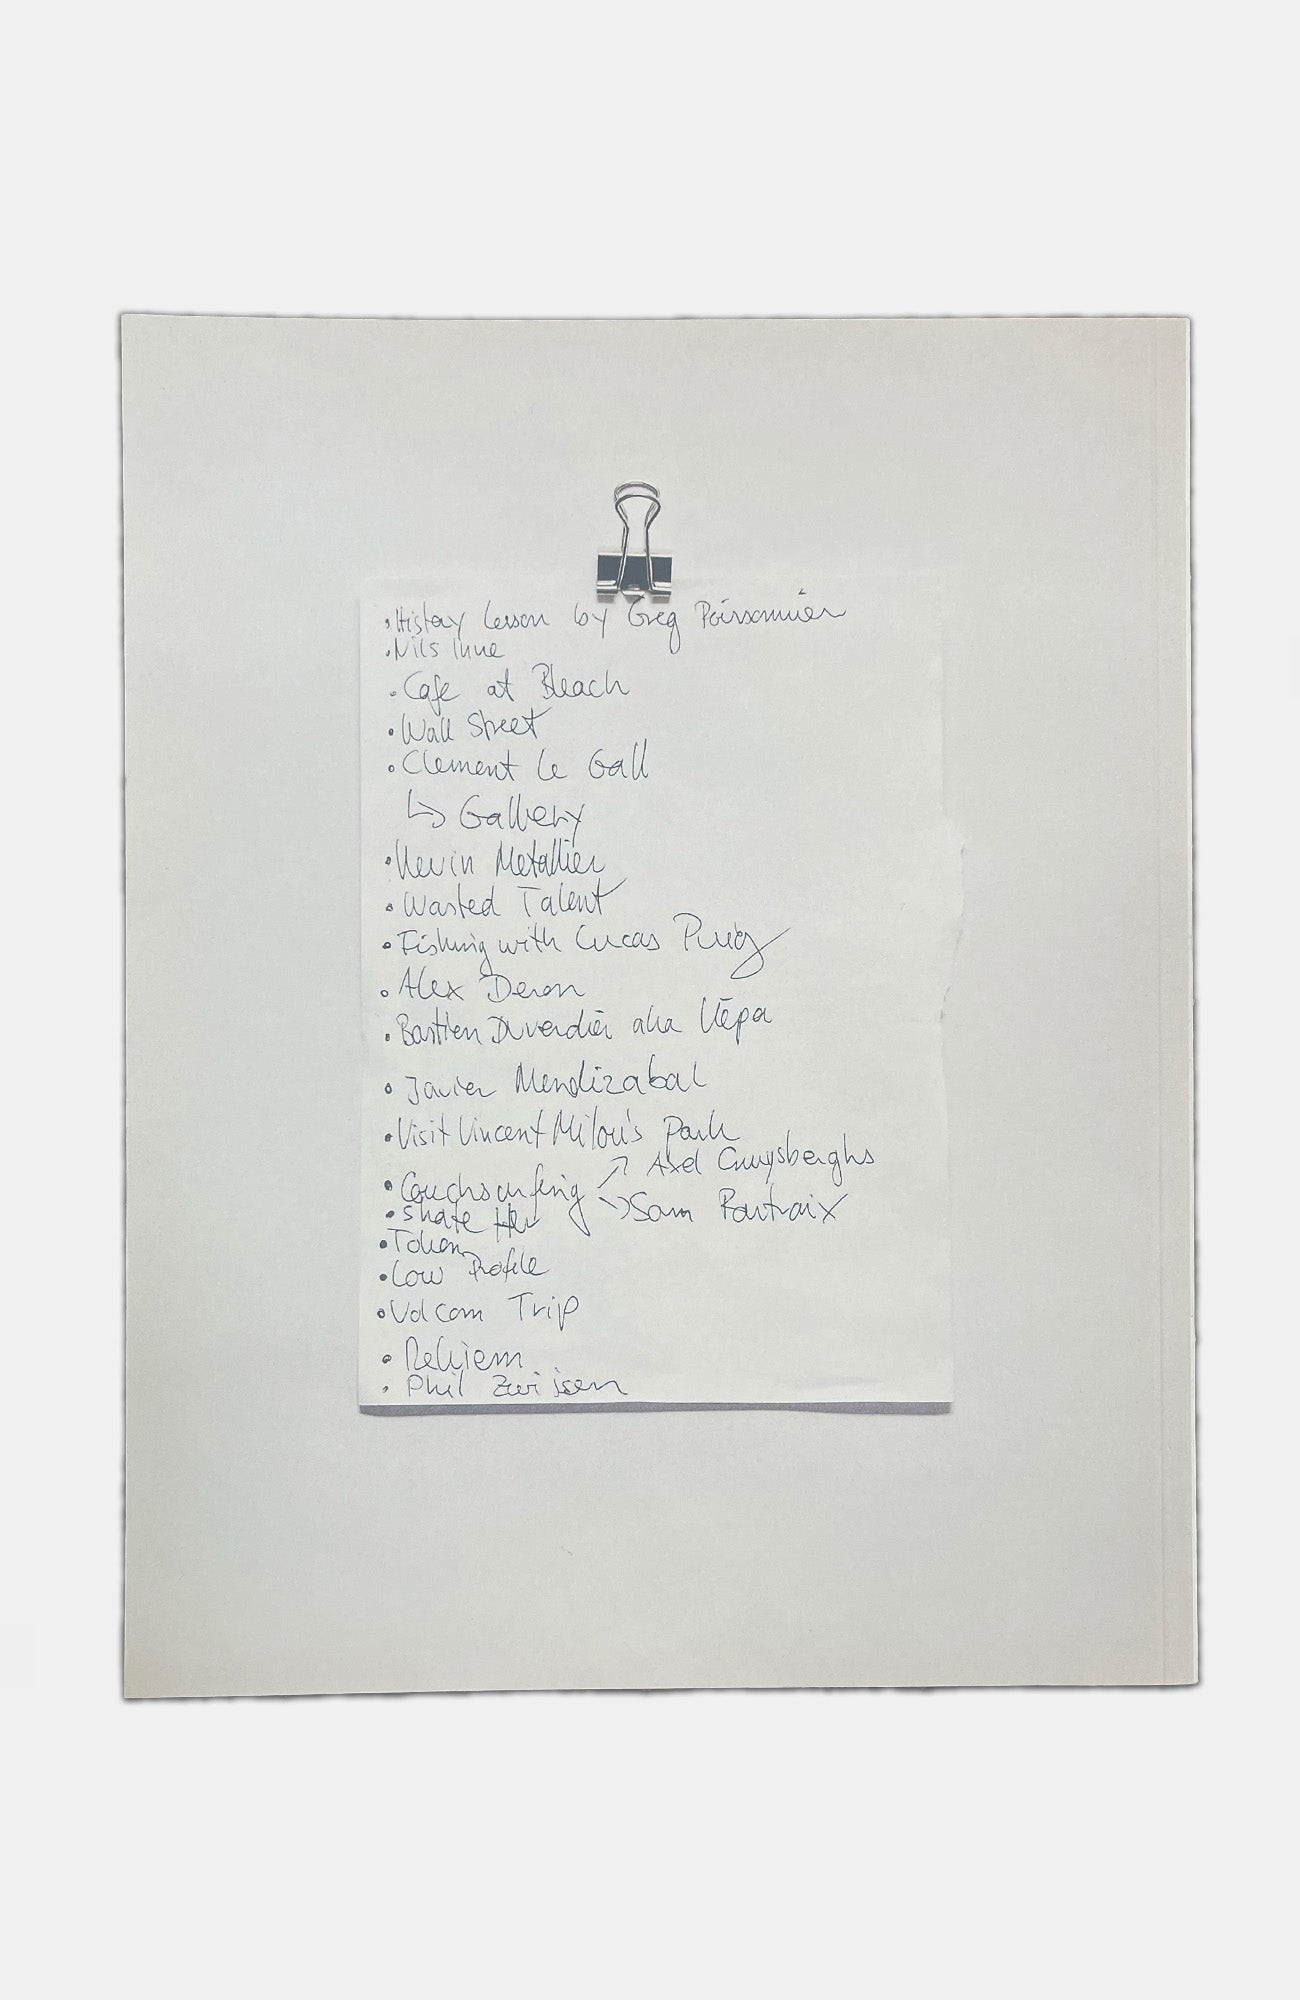 • History Lesson by Greg Poissonnier
• Nils Inne
• Cafe at Bleach
• Wall Street
• Clement Le Gall
↳ Gallery
• Kevin Metallier
• Wasted Talent
• Fishing with Lucas Puig
• Alex Deron
• Bastien Duverdier aka Képa
• Javier Mendizabal
• Visit Vincent Milou's Park
↗ Axel Cruysberghs
• Couchsurfing
↘ Sam Partaix
• Skate Her
• Token
• Low Profile
• Volcom Trip
• Rekiem
• Phil Zwijsen